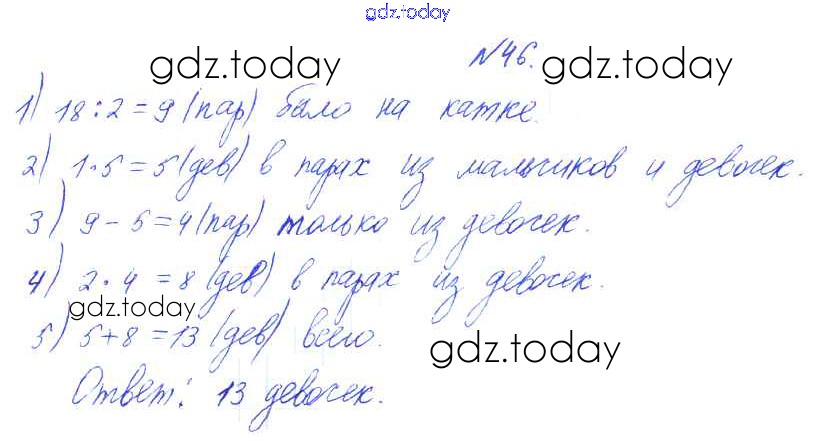 gdz.today
№46.
gdz.today gdz.today
1) 18:2=9 (пар) было на катке.
2) 1·5=5 (дев) в парах из мальчиков и девочек.
3) 9-5=4 (пар) только из девочек.
4) 2·4=8 (дев) в парах из девочек.
gdz.today
5) 5+8=13 (дев) всего.
gdz.today
Ответ: 13 девочек.